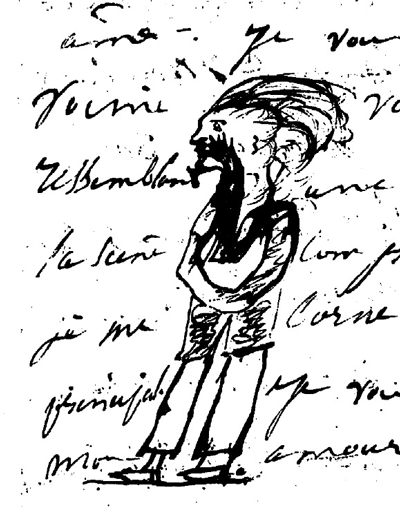 âme -. Je vou
Voisine vo
ressemblan une
la scène com
je me Corne
principal Je vou
mon amour